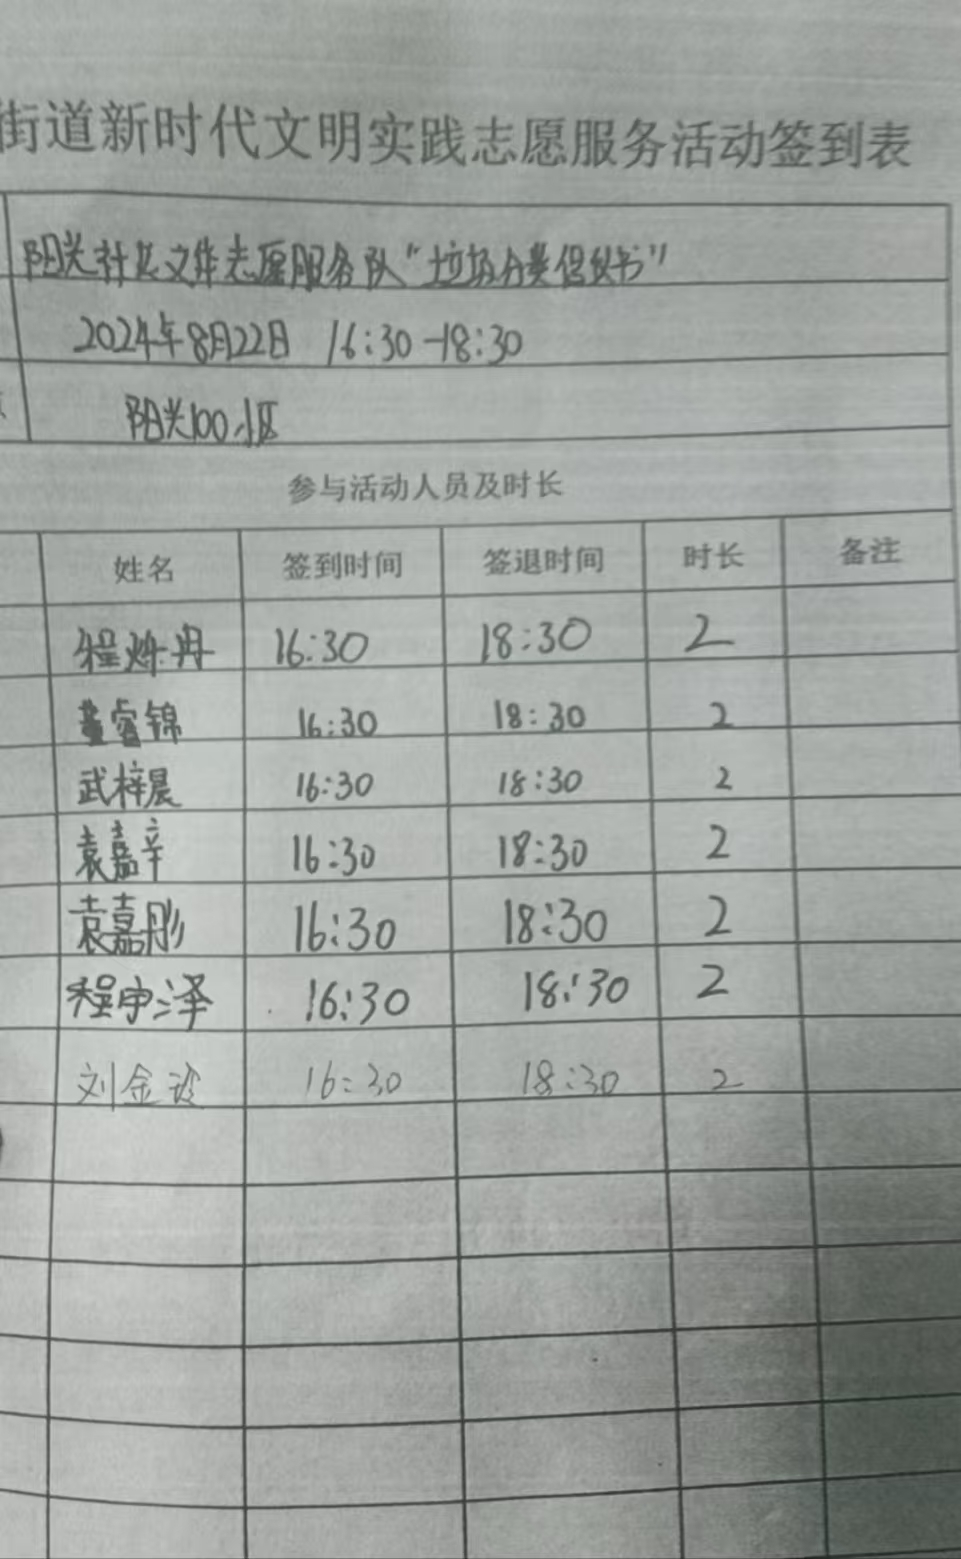 街道新时代文明实践志愿服务活动签到表
阳光社区文体志愿服务队“垃圾分类倡议书”
2024年8月22日 16:30-18:30
阳光100小区
参与活动人员及时长
姓名 签到时间 签退时间 时长 备注
程烨丹 16:30 18:30 2
董睿锦 16:30 18:30 2
武梓晨 16:30 18:30 2
袁嘉辛 16:30 18:30 2
袁嘉彤 16:30 18:30 2
程申泽 16:30 18:30 2
刘金玲 16:30 18:30 2